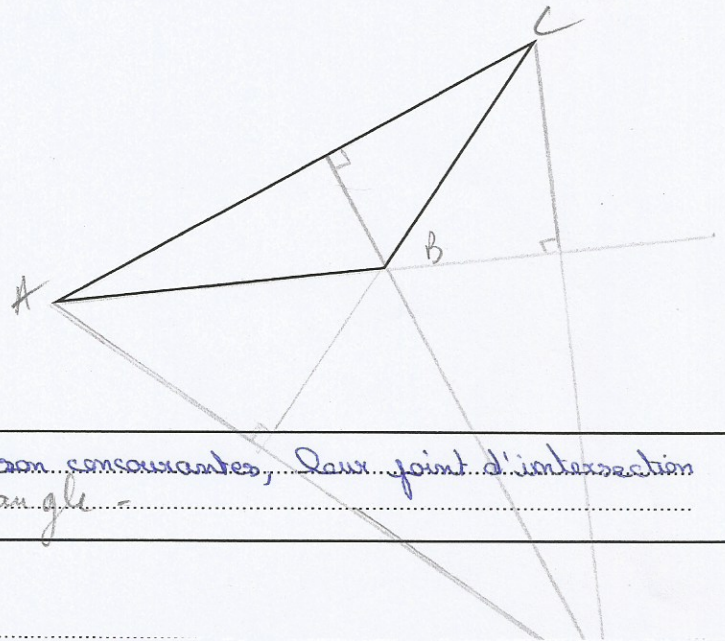 C
B
A
son concourantes, leur point d'intersection
angle -